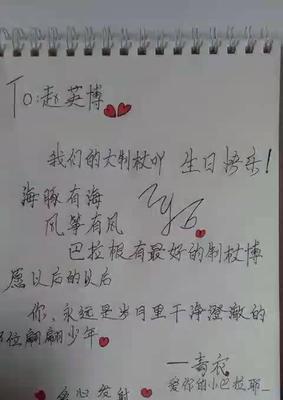 To:赵英博
我们的大制杖吖 生日快乐!
海豚有海
风筝有风
巴拉根有最好的制杖博
愿以后的以后
你、永远是岁月里干净澄澈的
位翩翩少年
爱你的小巴拉
心发射